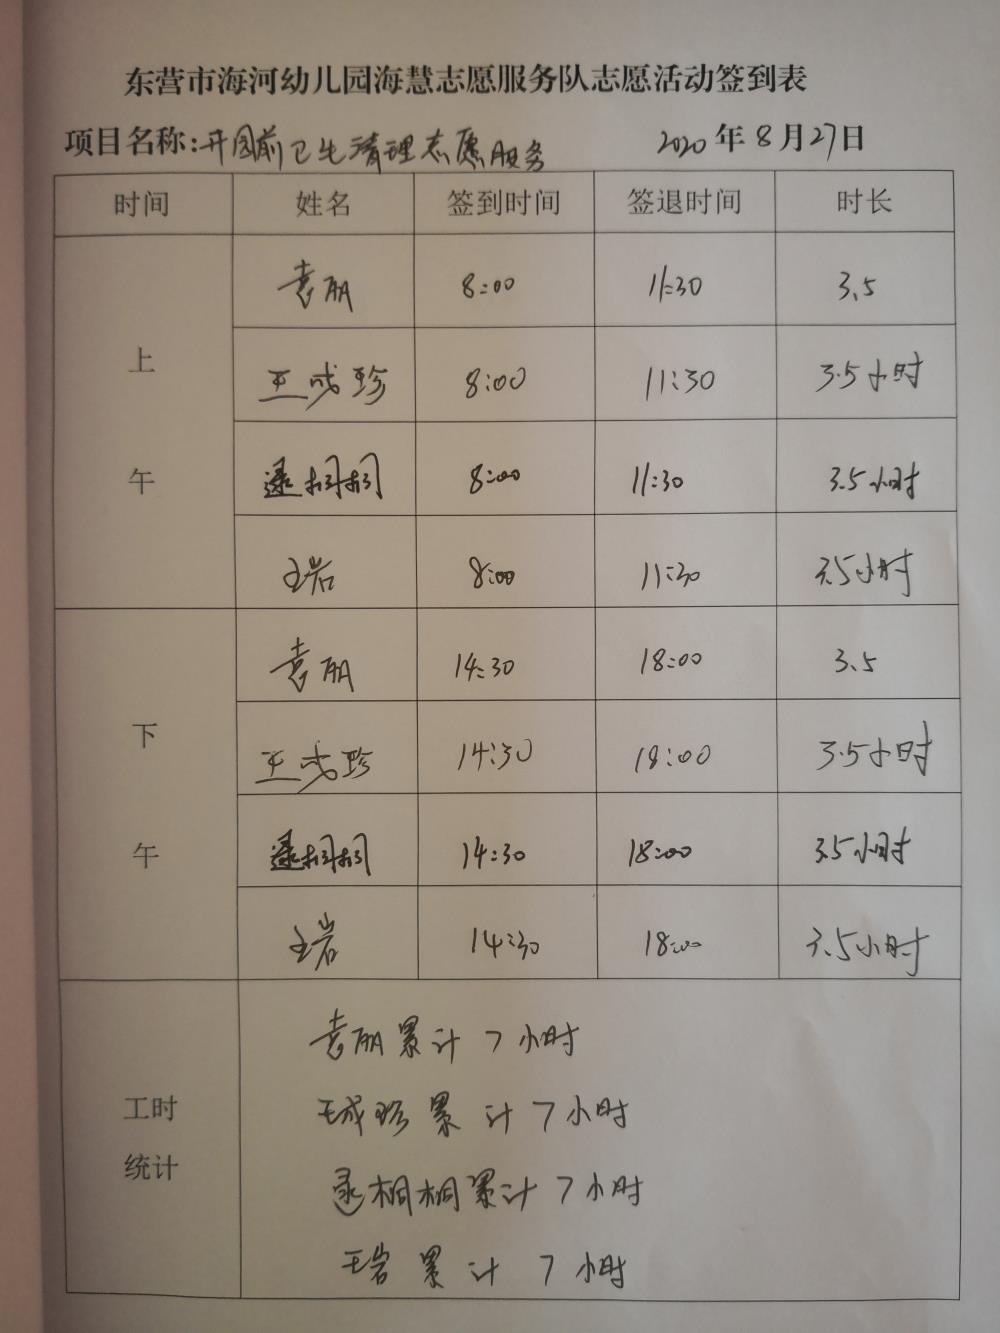 东营市海河幼儿园海慧志愿服务队志愿活动签到表
项目名称:开园前卫生清理志愿服务 2020年8月27日
时间 姓名 签到时间 签退时间 时长
上午
袁丽 8:00 11:30 3.5
王成珍 8:00 11:30 3.5小时
逯桐桐 8:00 11:30 3.5小时
王岩 8:00 11:30 3.5小时
下午
袁丽 14:30 18:00 3.5
王成珍 14:30 18:00 3.5小时
逯桐桐 14:30 18:00 3.5小时
王岩 14:30 18:00 3.5小时
工时
统计
袁丽累计7小时
王成珍累计7小时
逯桐桐累计7小时
王岩累计7小时